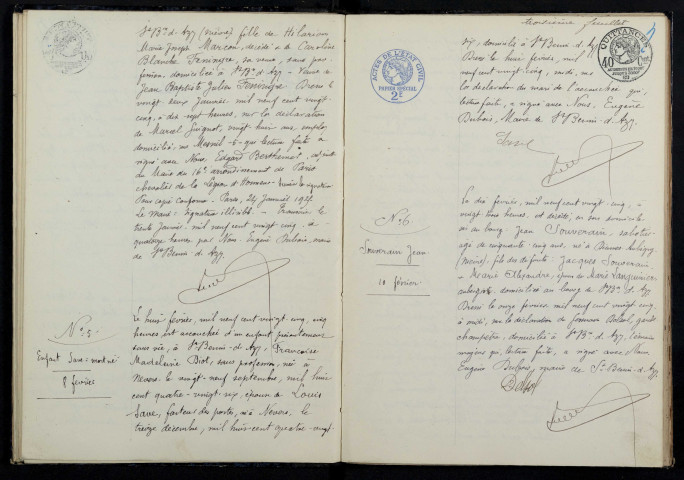 St Bin d'Azy (Nièvre) fille de Hilarion
Marie Joseph Marcou, décédé et de Caroline
Blanche sa veuve, sans pro-
fession domiciliée à St Bin d'Azy - Veuve de
Jean Baptiste Julien Dressé le
vingt sept Janvier mil neuf cent vingt
cinq, à dix sept heures, sur la déclaration
de Marcel Guignot, vingt huit ans, employé
domicilié, rue Mesnil-5- que lecture faite a
signé avec Nous, Edgard Berthemot, adjoint
du Maire du 16e arrondissement de Paris
chevalier de la Légion d'Honneur
Pour copie conforme - Paris, 24 Janvier 1925
Le Maire: signature illisible - Transcrit le
trente Janvier, mil neuf cent vingt cinq, à
quatorze heures par Nous Eugène Dubois, maire
de St Benin d'Azy.
No 5
Enfant Sans-mort né
8 février
Le huit février, mil neuf cent vingt cinq, cinq
heures est accouchée d'un enfant présentement
sans vie, à St Benin-d'Azy, Françoise
Madeleine Diot, sans profession, née à
Nevers le vingt-neuf septembre, mil huit
cent quatre-vingt-six, épouse de Louis
Save, facteur des postes, né à Nevers, le
treize décembre, mil huit-cent quatre-vingt-
ACTES DE L'ETAT CIVIL
PAPIER SPECIAL
2F
troisième feuillet
QUITTANCES
40
domicilié à St Benin d'Azy
Dressé le huit février, mil
neuf cent vingt cinq, midi, sur
la déclaration du mari de l'accouchée qui,
lecture faite, a signé avec Nous, Eugène
Dubois, Maire de St Benin-d'Azy.
No 6
Souverain Jean
10 février
Le dix février, mil neuf cent vingt cinq, à
vingt trois heures, est décédé, en son domicile
sis au bourg, Jean Souverain, sabotier
âgé de cinquante cinq ans, né à
(Nièvre), fils des défunts: Jacques Souverain
et Marie Alexandre, époux de Marie
aubergiste domiciliée au bourg de St Bin d'Azy
Dressé le onze février mil neuf cent vingt cinq,
à midi, sur la déclaration de garde
champêtre, domicilié à St Bin d'Azy, témoin
majeur qui, lecture faite, a signé avec Nous
Eugène Dubois, maire de St Benin-d'Azy.